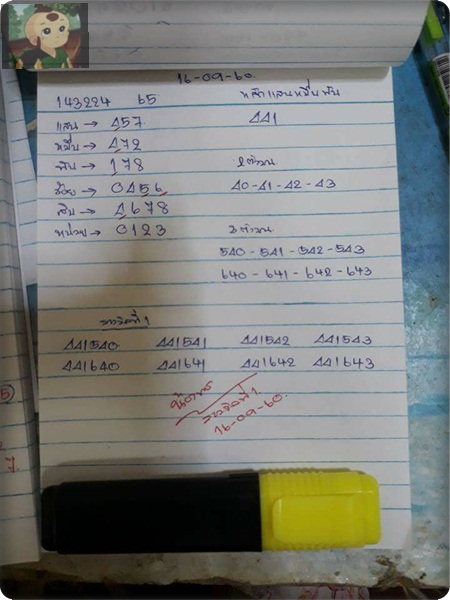 16-09-60.
143224 65 หลักแสนหมื่นพัน
แสน → 457 441
หมื่น → 472
พัน → 178 2ตัวบน
ร้อย → 0456 40-41-42-43
สิบ → 4678 3ตัวบน
หน่วย → 0123
540-541-542-543
640-641-642-643
รางวัลที่ 1
441540 441541 441542 441543
441640 441641 441642 441643
รางวัลที่ 1
16-09-60.
5